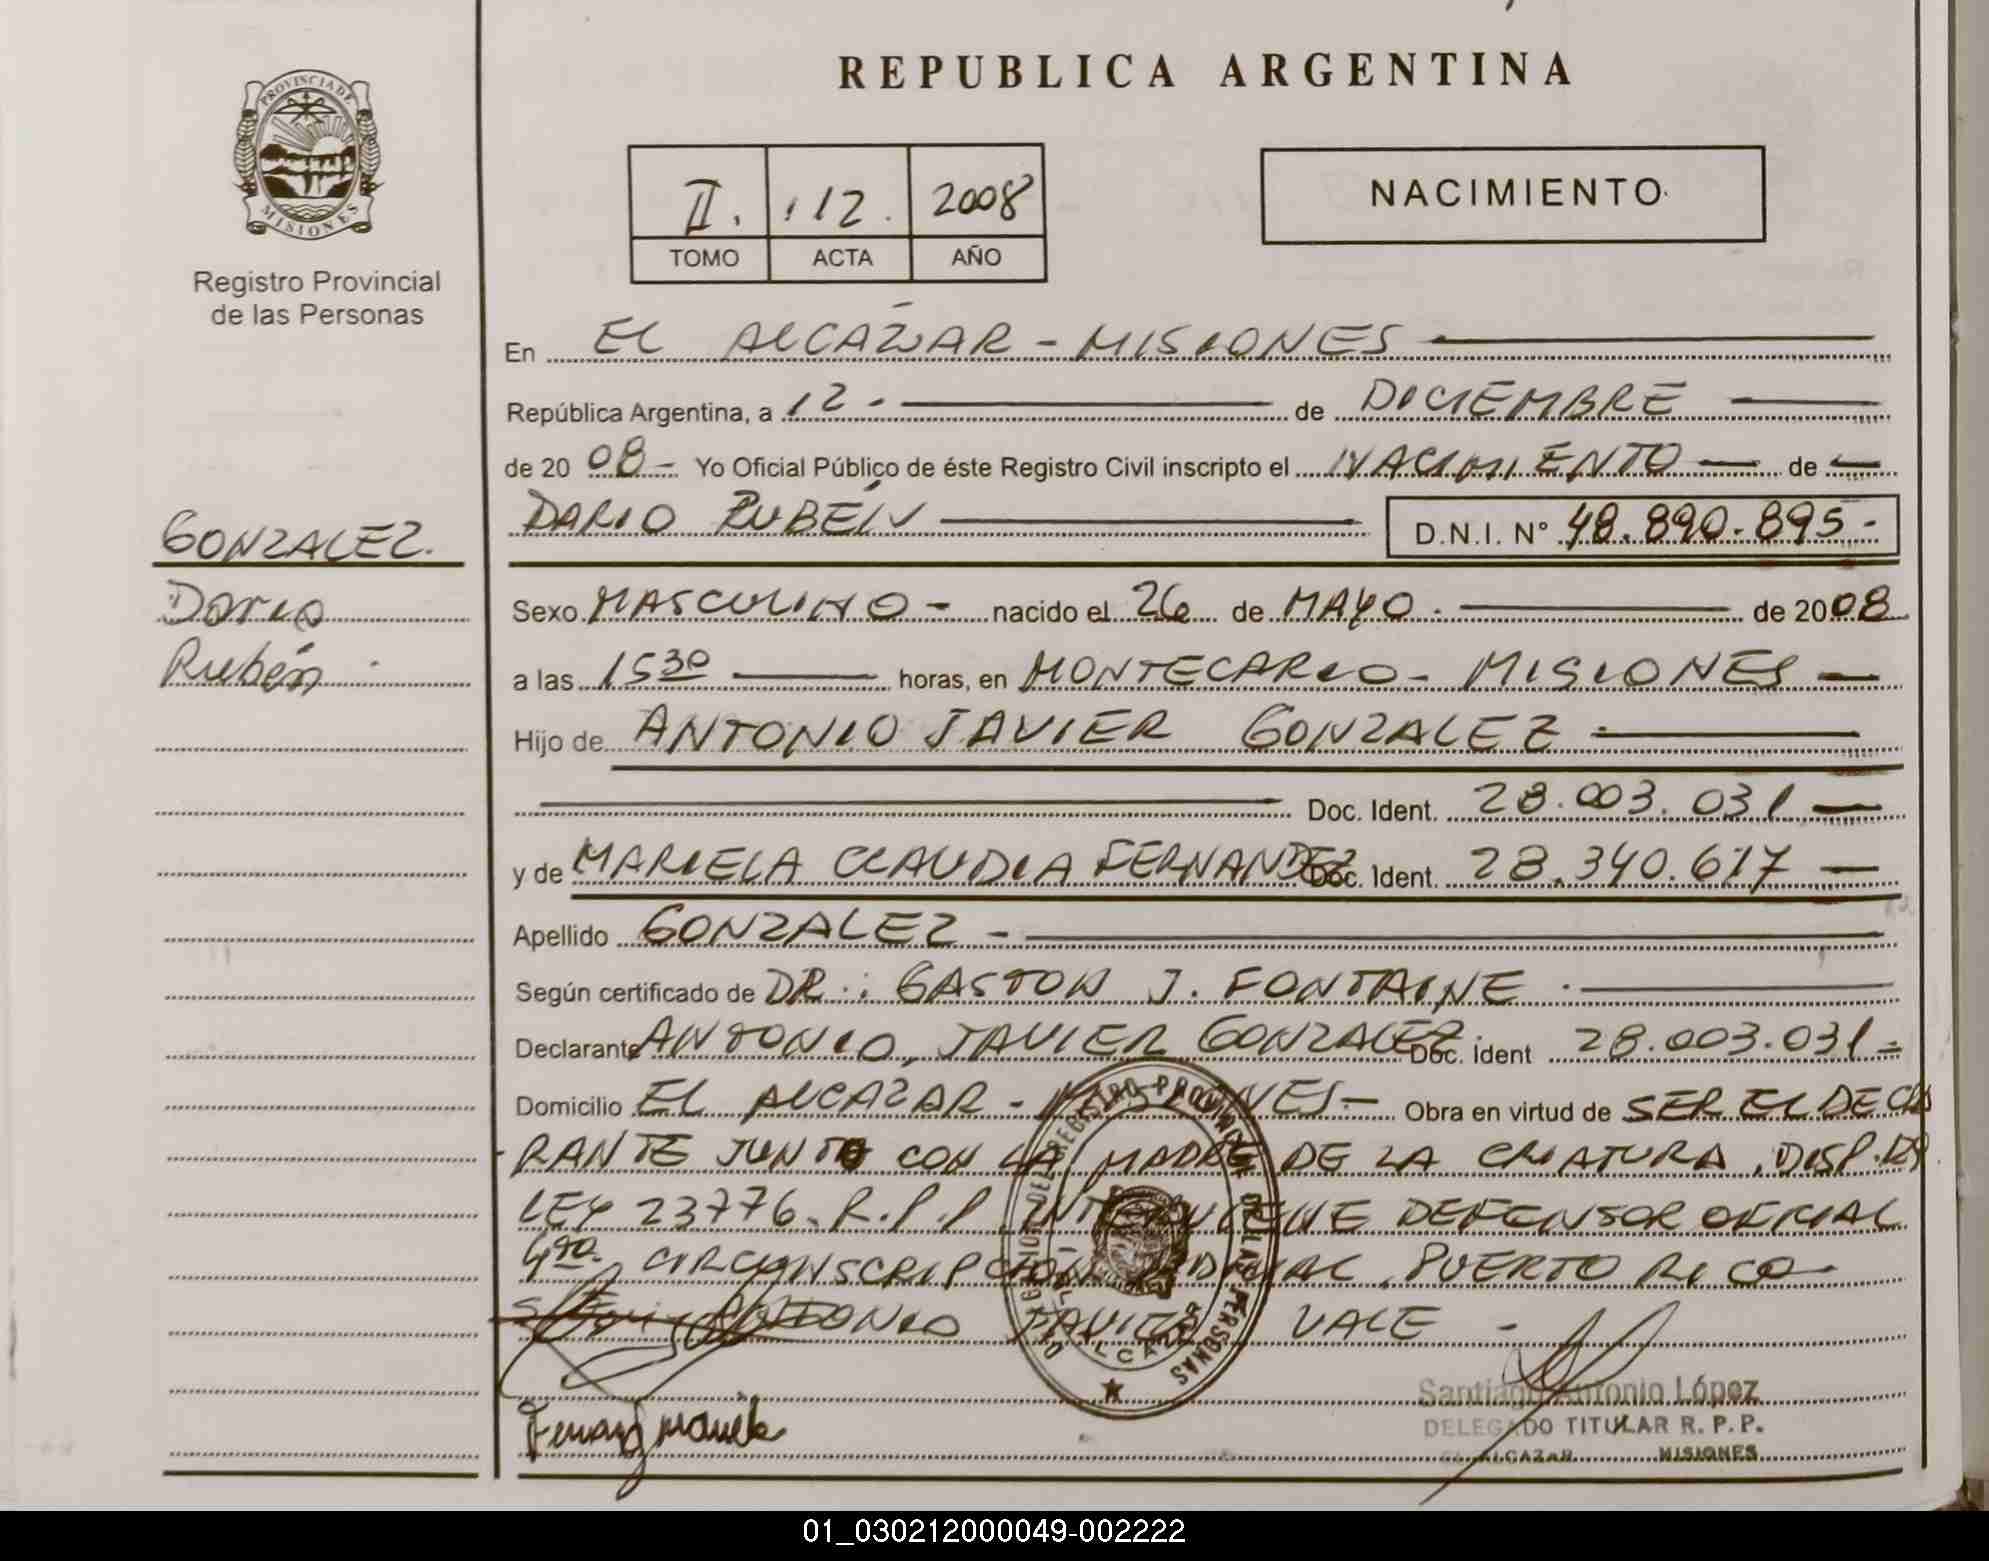 REPUBLICA ARGENTINA
PROVINCIA DE
MISIONES
Registro Provincial
de las Personas
II. 112. 2008
TOMO ACTA AÑO
NACIMIENTO
En EL ALCÁZAR - MISIONES
República Argentina, a 12 - de DICIEMBRE
de 20 08 - Yo Oficial Público de éste Registro Civil inscripto el NACIMIENTO de
DARIO RUBÉN D.N.I. Nº 48.890.895-
GONZALEZ.
Dario
Rubén
Sexo MASCULINO - nacido el 26 de MAYO de 2008
a las 15 30 horas, en MONTECARLO - MISIONES
Hijo de ANTONIO JAVIER GONZALEZ
Doc. Ident. 28.003.031
y de MARIELA CLAUDIA FERNANDEZ Doc. Ident. 28.340.617
Apellido GONZALEZ -
Según certificado de DR.: GASTON J. FONTAINE
Declarante ANTONIO, JAVIER GONZALEZ Doc. Ident 28.003.031-
Domicilio EL ALCAZAR - MISIONES - Obra en virtud de SER EL DECLA
RANTE JUNTO CON LA MADRE DE LA CRIATURA, DISP.
LEY 23776. R.P.P. INTERVIENE DEFENSOR OFICIAL
4ta. CIRCUNSCRIPCION JUDICIAL, PUERTO RICO
ANTONIO JAVIER VALE -
DELEGACION DEL REGISTRO PROVINCIAL DE LAS PERSONAS
EL ALCAZAR
Santiago Antonio López
DELEGADO TITULAR R. P. P.
EL ALCAZAR MISIONES
01_030212000049-002222